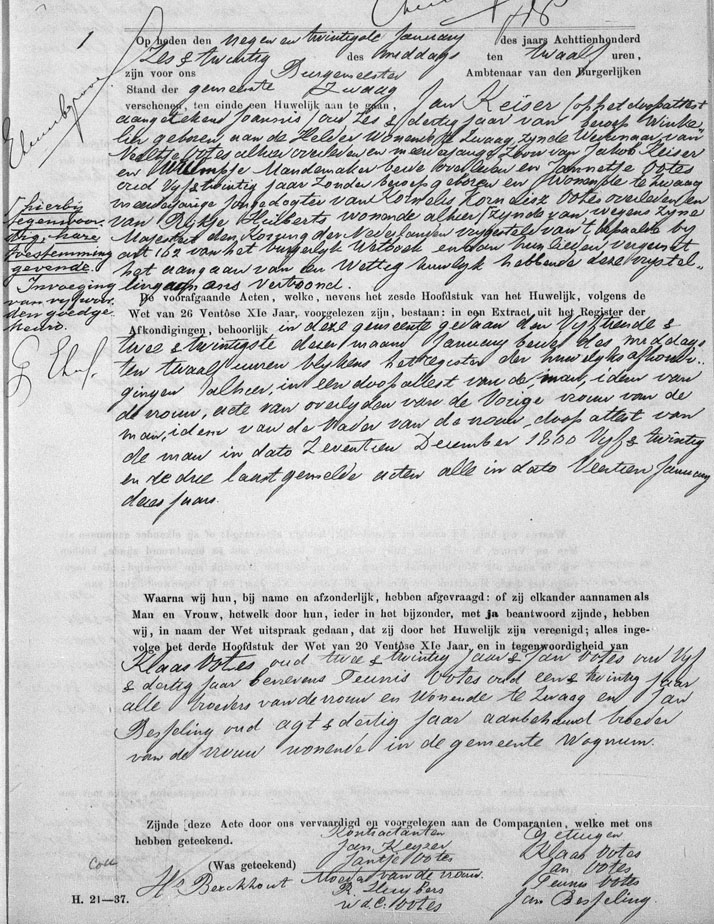 1
Op heden den negen en twintigste January des jaars Achttienhonderd
Zes & twintig des middags ten twaalf uren,
zijn voor ons Burgemeester Ambtenaar van den Burgerlijken
Stand der gemeente Zwaag
verschenen, ten einde een Huwelijk aan te gaan, Jan Keiser (op het doopattest
aangetekend Joannis) oud Zes & dertig jaar van beroep Winke-
lier geboren aan de Helder Wonende te Zwaag, zynde Weduwnaar van
Neeltje Votes alhier overleden en meerderjarige Zoon van Jakob Keiser
en Mandemaker beide overleden en Jannetje Votes
oud Vyf & twintig jaar Zonder beroep geboren en Wonende te Zwaag
meerderjarige Jongedogter van Kornelis Korn desz Votes overleden en
van Huiberts wonende alhier (zynde van wegens Zyne
Majesteit den Koning der Nederlanden vrygestele van t bepaalde by
art 162 van het burgerlyk Wetboek en aan hun lieden vergunt
het aangaan van een Wettig huwelyk hebbende deze vrystel-
ling aan ons vertoond.
hierbij
tegenwoor
dig, hare
toestemming
gevende.
Invoeging
van vyf woor
den goedge
keurd.
De voorafgaande Acten, welke, nevens het zesde Hoofdstuk van het Huwelijk, volgens de
Wet van 26 Ventôse XIe Jaar, voorgelezen zijn, bestaan: in een Extract uit het Register der
Afkondigingen, behoorlijk in deze gemeente gedaan den Vyftiende &
twee & twintigste dezer maand January beide des middags
ten twaalf uuren blykens het register der huwelyksafkondi-
gingen alhier, in een doop attest van de man, idem van
de vrouw, acte van overlyden van de Vorige vrouw van de
man, idem van de Vader van de vrouw, doop attest van
de man in dato Zeventien December 1800 Vyf & twintig
en de drie laastgemelde acten alle in dato Veertien January
dezes jaars.
Waarna wij hun, bij name en afzonderlijk, hebben afgevraagd: of zij elkander aannamen als
Man en Vrouw, hetwelk door hun, ieder in het bijzonder, met ja beantwoord zijnde, hebben
wij, in naam der Wet uitspraak gedaan, dat zij door het Huwelijk zijn vereenigd; alles inge-
volge het derde Hoofdstuk der Wet van 20 Ventôse XIe Jaar, en in tegenwoordigheid van
Klaas Votes oud twee & twintig jaar & Jan Votes oud Vyf
& dertig jaar benevens Teunis Votes oud een & twintig jaar
alle broeders van de vrouw en Wonende te Zwaag en Jan
Besseling oud agt & dertig jaar aanbehuwd broeder
van de vrouw wonende in de gemeente Wognum.
Zijnde deze Acte door ons vervaardigd en voorgelezen aan de Comparanten, welke met ons
hebben geteekend.
Kontractanten Getuigen
Jan Keyzer Klaas Votes
(Was geteekend) Jantje Votes Jan Votes
Hs Berckhout Moeder van de vrouw Teunis Votes
Jan Besseling.
w.d.C. Votes
H. 21—37.